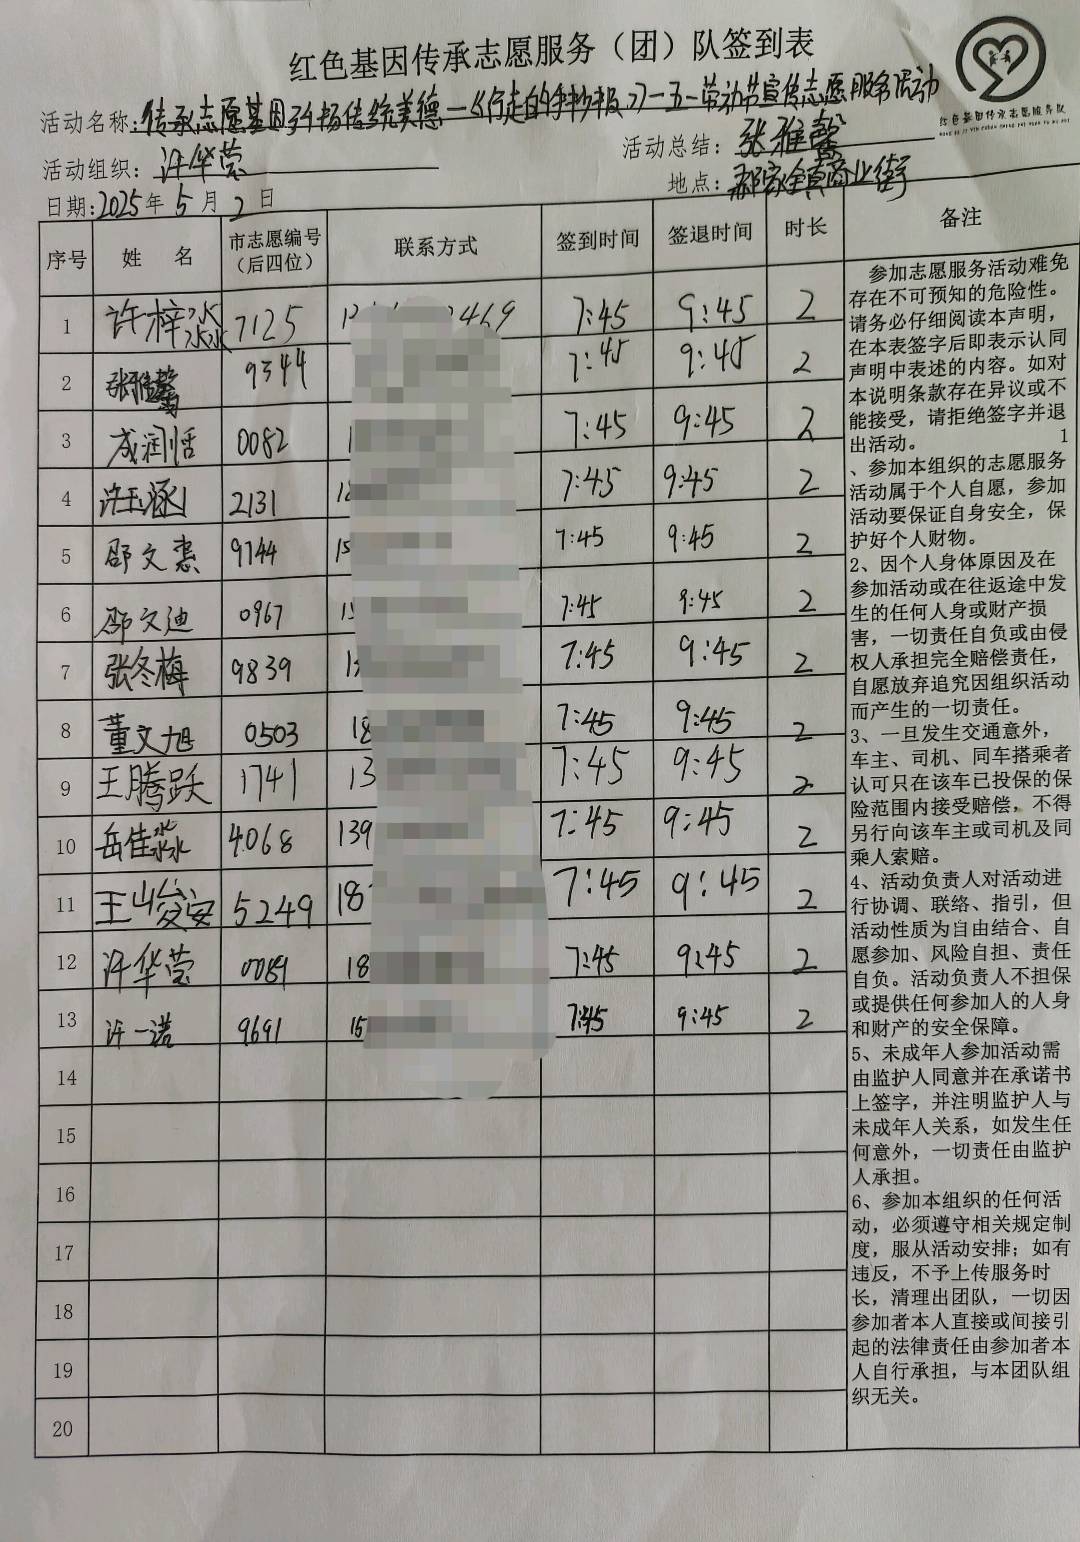 红色基因传承志愿服务（团）队签到表
红色基因传承志愿服务队
活动名称：传承志愿基因 弘扬传统美德—《行走的手抄报》五一劳动节宣传志愿服务活动
活动组织：许华莹 活动总结：张雅馨
日期：2025年5月2日 地点：郝家镇商业街
序号 姓 名 市志愿编号（后四位） 联系方式 签到时间 签退时间 时长 备注
1 许梓淼 7125 2469 7:45 9:45 2
2 张雅馨 9344 7:45 9:45 2
3 成润恬 0082 1 7:45 9:45 2
4 许玉涵 2131 18 7:45 9:45 2
5 邵文惠 9744 15 7:45 9:45 2
6 邵文迪 0967 15 7:45 9:45 2
7 张冬梅 9839 7:45 9:45 2
8 董文旭 0503 18 7:45 9:45 2
9 王腾跃 1741 13 7:45 9:45 2
10 岳佳淼 4068 139 7:45 9:45 2
11 王峻安 5249 18 7:45 9:45 2
12 许华莹 0089 18 7:45 9:45 2
13 许一诺 9691 15 7:45 9:45 2
14
15
16
17
18
19
20
参加志愿服务活动难免
存在不可预知的危险性。
请务必仔细阅读本声明，
在本表签字后即表示认同
声明中表述的内容。如对
本说明条款存在异议或不
能接受，请拒绝签字并退
出活动。 1
、参加本组织的志愿服务
活动属于个人自愿，参加
活动要保证自身安全，保
护好个人财物。
2、因个人身体原因及在
参加活动或在往返途中发
生的任何人身或财产损
害，一切责任自负或由侵
权人承担完全赔偿责任，
自愿放弃追究因组织活动
而产生的一切责任。
3、一旦发生交通意外，
车主、司机、同车搭乘者
认可只在该车已投保的保
险范围内接受赔偿，不得
另行向该车主或司机及同
乘人索赔。
4、活动负责人对活动进
行协调、联络、指引，但
活动性质为自由结合、自
愿参加、风险自担、责任
自负。活动负责人不担保
或提供任何参加人的人身
和财产的安全保障。
5、未成年人参加活动需
由监护人同意并在承诺书
上签字，并注明监护人与
未成年人关系，如发生任
何意外，一切责任由监护
人承担。
6、参加本组织的任何活
动，必须遵守相关规定制
度，服从活动安排；如有
违反，不予上传服务时
长，清理出团队，一切因
参加者本人直接或间接引
起的法律责任由参加者本
人自行承担，与本团队组
织无关。